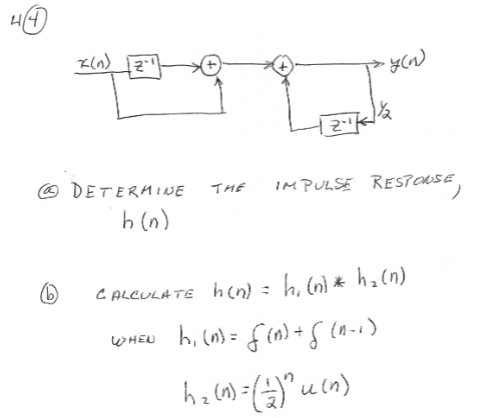 4(4)
x(n) z⁻¹ + + y(n)
z⁻¹ 1/2
(a) DETERMINE THE IMPULSE RESPONSE,
h(n)
(b) CALCULATE h(n) = h₁(n) * h₂(n)
WHEN h₁(n) = δ(n) + δ(n-1)
h₂(n) = (1/2)ⁿ u(n)